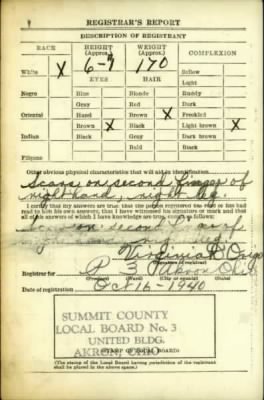 REGISTRAR'S REPORT
DESCRIPTION OF REGISTRANT
RACE HEIGHT (Approx.) WEIGHT (Approx.) COMPLEXION
White X 6-1 170 Sallow
EYES HAIR Light
Negro Blue Blonde Ruddy
Gray Red Dark
Oriental Hazel Brown X Freckled
Brown X Black Light brown X
Indian Black Gray Dark brown
Bald Black
Filipino
Other obvious physical characteristics that will aid in identification
Scars on second finger of
right hand, right
I certify that my answers are true; that the person registered has read or has had
read to him his own answers; that I have witnessed his signature or mark and that
all of his answers of which I have knowledge are true, except as follows:
on second
Virginia
(Signature of registrar)
Registrar for P 3 Akron Ohio
(Precinct) (Ward) (City or county) (State)
Date of registration Oct 16-1940
SUMMIT COUNTY
LOCAL BOARD No. 3
UNITED BLDG.
AKRON, OHIO
(STAMP OF LOCAL BOARD)
(The stamp of the Local Board having jurisdiction of the registrant
shall be placed in the above space.)